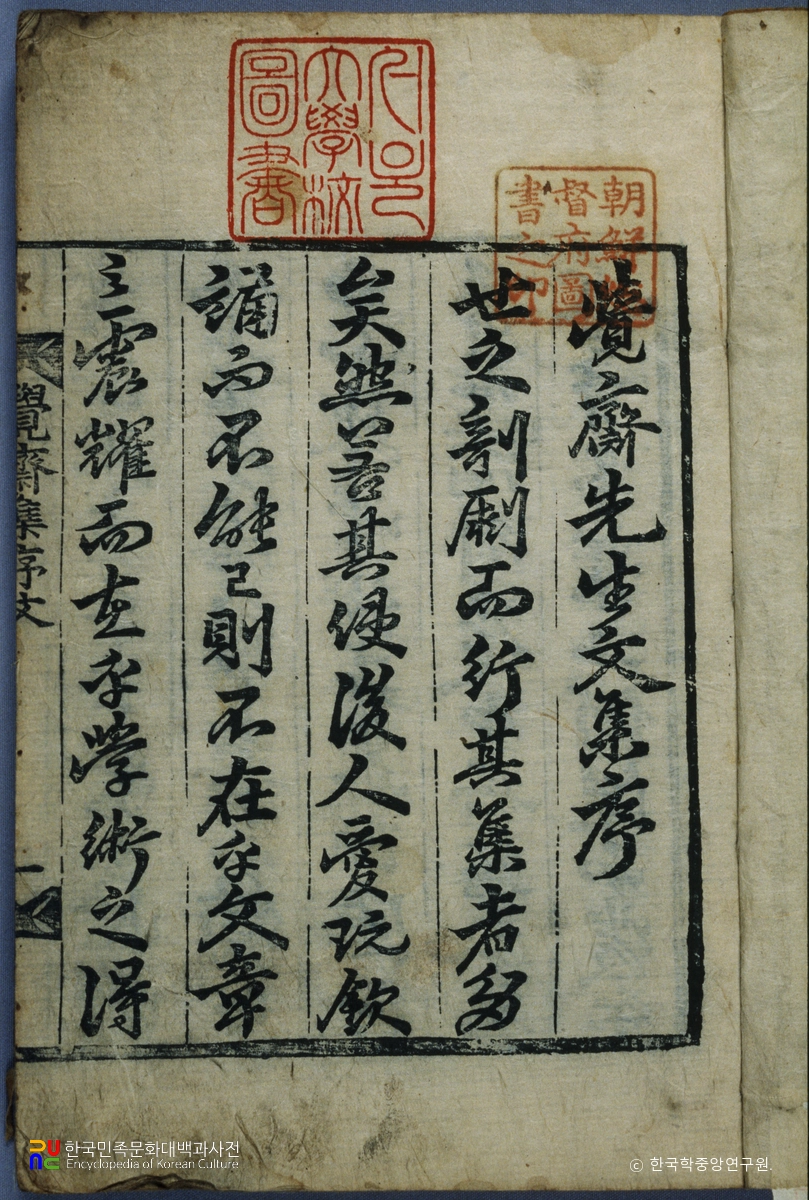 覺齋先生文集序
世之剞劂而行其集者多
矣然若其使後人愛玩欽
誦而不能已則不在乎文章
之震耀而在乎學術之得
覺齋集序文
一
朝鮮總
督府圖
書之印
大學校
圖書
한국민족문화대백과사전
Encyclopedia of Korean Culture
ⓒ 한국학중앙연구원.